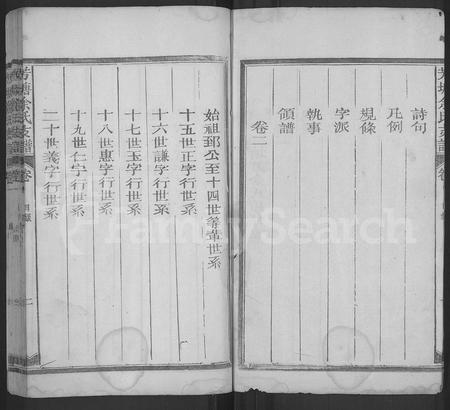 芳塘余氏支譜
詩句
凡例
規條
字派
執事
領譜
卷二
始祖郅公至十四世等輩世系
十五世正字行世系
十六世謙字行世系
十七世玉字行世系
十八世惠字行世系
十九世仁字行世系
二十世義字行世系
芳塘余氏支譜
卷
目錄
FamilySearch